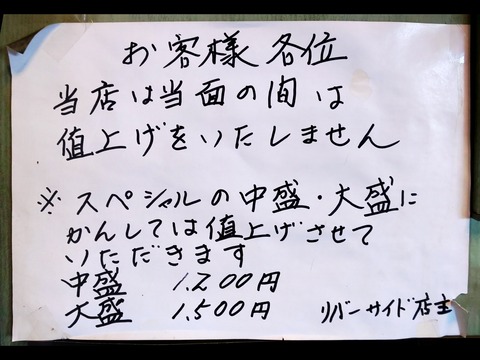 お客様各位
当店は当面の間は
値上げをいたしません
※スペシャルの中盛・大盛に
かんしては値上げさせて
いただきます
中盛 1.200円
大盛 1,500円 リバーサイド店主